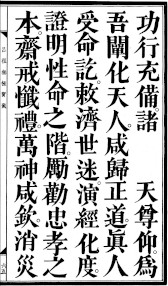 功行充備諸　天尊仰爲
吾闡化天人。咸歸正道。眞人
受命訖。救濟世迷。演經化度。
證明性命之階。厲勸忠孝之
本。齋戒懺禮。萬神咸欽。消災